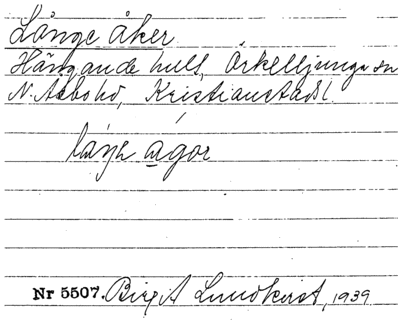 Långe åker
Hängande hull, Örkelljunga sn
N. Åsbo hd, Kristianstads l.
agor
Nr 5507. Birgit Lundkvist, 1939